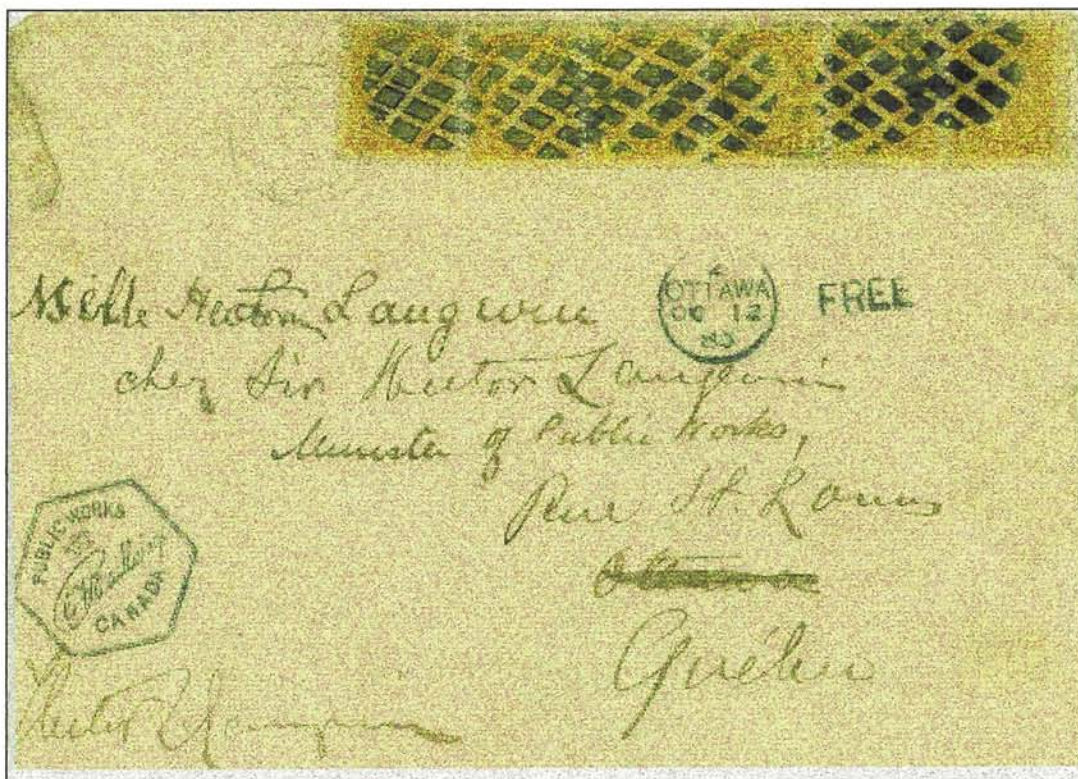 Melle Hectorine Langevin
chez Sir Hector Langevin
Minister of Public Works,
Rue St. Louis
Québec
OTTAWA
OC 12
FREE
PUBLIC WORKS
CANADA
Hector L Langevin